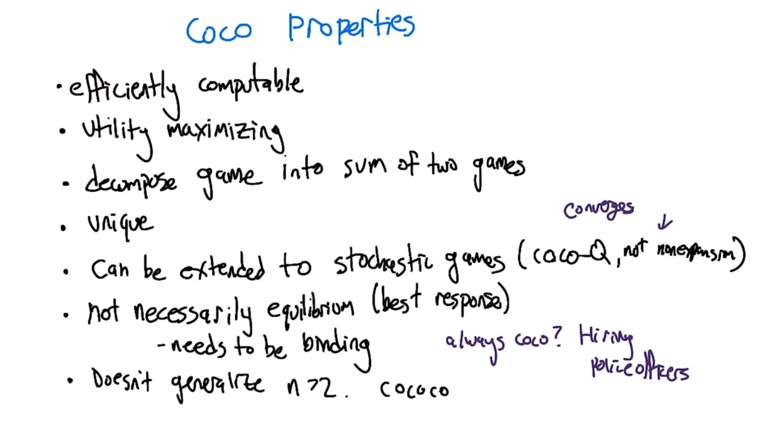 Coco Properties
• efficiently computable
• utility maximizing
• decompose game into sum of two games
• unique
converges
• can be extended to stochastic games (coco-Q, not nonexpansion)
• not necessarily equilibrium (best response)
- needs to be binding
always coco? Hiring
police officers
• Doesn't generalize n>2. cococo